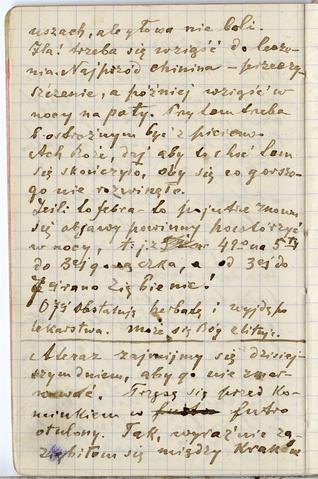 uszach, ale głowa nie boli.
Ha! trzeba się wziąść do lecze-
nia. Najprzód chinina – przeczy-
szczenie, a później wziąść w
nocy na poty. Przytem trzeba
b. ostrożnym być z piciem.
Ach Boże, daj aby tychść tem
się skończyło, oby się co gorsze-
go nie rozwinęło.
Jeśli to febra to pojutrze znowu
się objawy powinny powtórzyć
w nocy, t. j. w 49° na 5ty
do 3ej gorączka, a od 3ej do
7 rano ziębienie!
Ojś obstaluję herbatę i wyjdę po
lekarstwa. Może się Bóg zlituje.
A teraz zajmijmy się dzisiej-
szym dniem, aby go nie zmar-
nować. Trzęsę się przed ko-
minkiem w futro
otulony. Tak, wyraźnie za-
ziębiłem się między Krakow